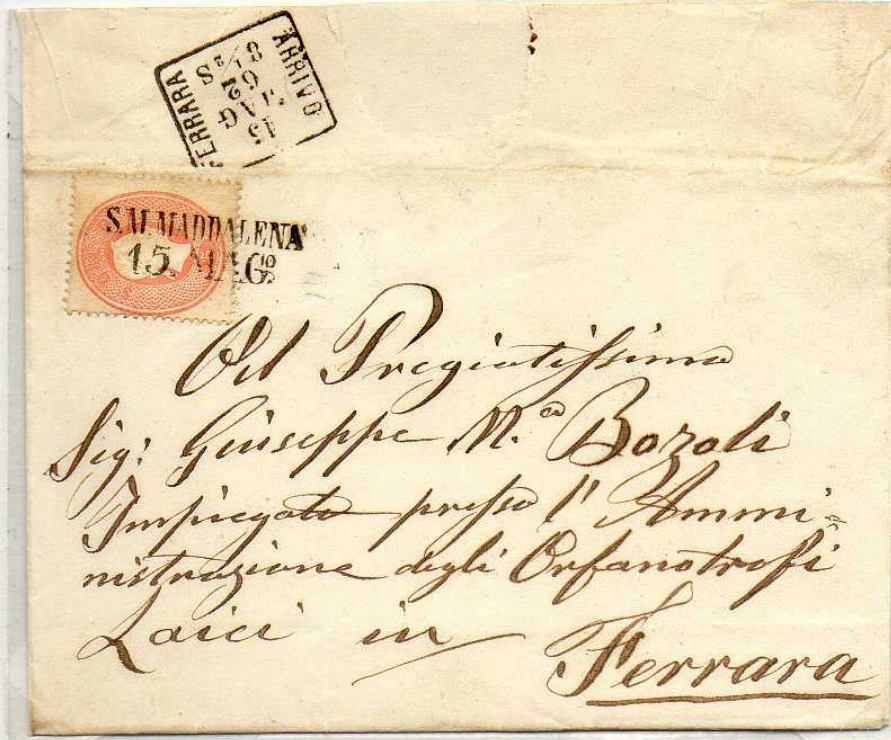 FERRARA
15
MAG
62
8 1/2 S
ARRIVO
S.M. MADDALENA
15. MAG.
Al Pregiatissimo
Sig: Giuseppe M.a Bozoli
Impiegato presso l' Ammi=
nistrazione degli Orfanotrofi
Laici in
Ferrara